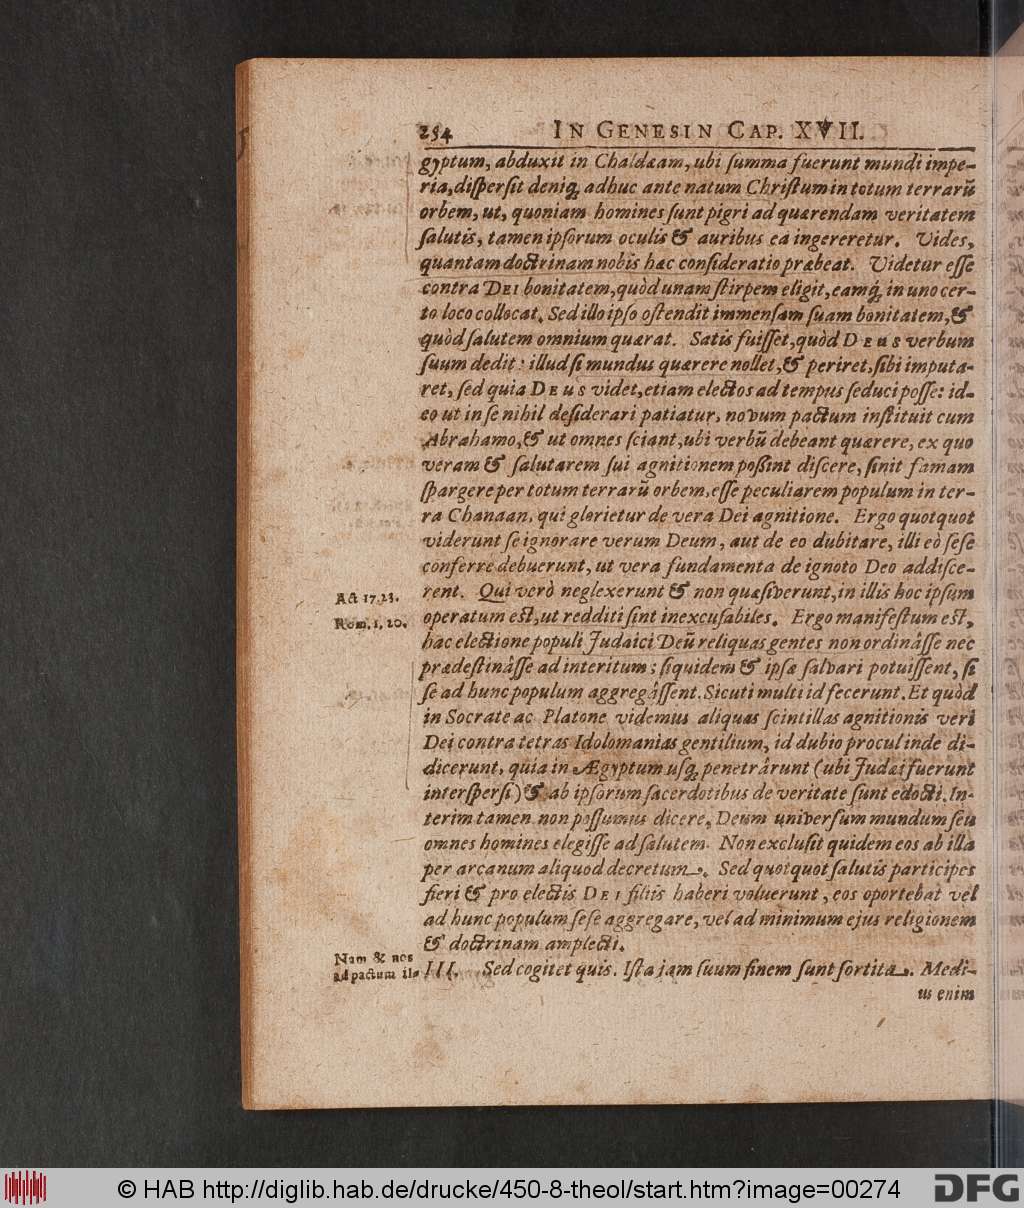 254 IN GENESIN CAP. XVII.
gyptum, abduxit in Chaldæam, ubi summa fuerunt mundi impe-
ria, dispersit deniq; adhuc ante natum Christum in totum terrarũ
orbem, ut, quoniam homines sunt pigri ad quærendam veritatem
salutis, tamen ipsorum oculis & auribus ea ingereretur. Vides,
quantam doctrinam nobis hæc consideratio præbeat. Videtur esse
contra DEI bonitatem, quòd unam stirpem eligit, eamq́; in uno cer-
to loco collocat. Sed illo ipso ostendit immensam suam bonitatem, &
quòd salutem omnium quærat. Satis fuisset, quòd DEUS verbum
suum dedit: illud si mundus quærere nollet, & periret, sibi imputa-
ret, sed quia DEUS videt, etiam electos ad tempus seduci posse: id-
eo ut in se nihil desiderari patiatur, novum pactum instituit cum
Abrahamo, & ut omnes sciant, ubi verbũ debeant quærere, ex quo
veram & salutarem sui agnitionem possint discere, sinit famam
spargere per totum terrarũ orbem, esse peculiarem populum in ter-
ra Chanaan, qui glorietur de vera Dei agnitione. Ergo quotquot
viderunt se ignorare verum Deum, aut de eo dubitare, illi eò sese
conferre debuerunt, ut vera fundamenta de ignoto Deo addisce-
Act 17.23. rent. Qui verò neglexerunt & non quæsiverunt, in illis hoc ipsum
Rom. 1, 20. operatum est, ut redditi sint inexcusabiles. Ergo manifestum est,
hac electione populi Judaici Deũ reliquas gentes non ordinâsse nec
prædestinâsse ad interitum; siquidem & ipsæ salvari potuissent, si
se ad hunc populum aggregâssent. Sicuti multi id fecerunt. Et quòd
in Socrate ac Platone videmus aliquas scintillas agnitionis veri
Dei contra tetras Idolomanias gentilium, id dubio procul inde di-
dicerunt, quia in Ægyptum usq; penetrârunt (ubi Judæi fuerunt
interspersi) & ab ipsorum sacerdotibus de veritate sunt edocti. In-
terim tamen non possumus dicere, Deum universum mundum seu
omnes homines elegisse ad salutem. Non exclusit quidem eos ab illa
per arcanum aliquod decretum. Sed quotquot salutis participes
fieri & pro electis DEI filiis haberi voluerunt, eos oportebat vel
ad hunc populum sese aggregare, vel ad minimum ejus religionem
& doctrinam amplecti.
Nam & nos
ad pactum illo III. Sed cogitet quis. Ista jam suum finem sunt sortita. Medi-
us enim
© HAB http://diglib.hab.de/drucke/450-8-theol/start.htm?image=00274
DFG